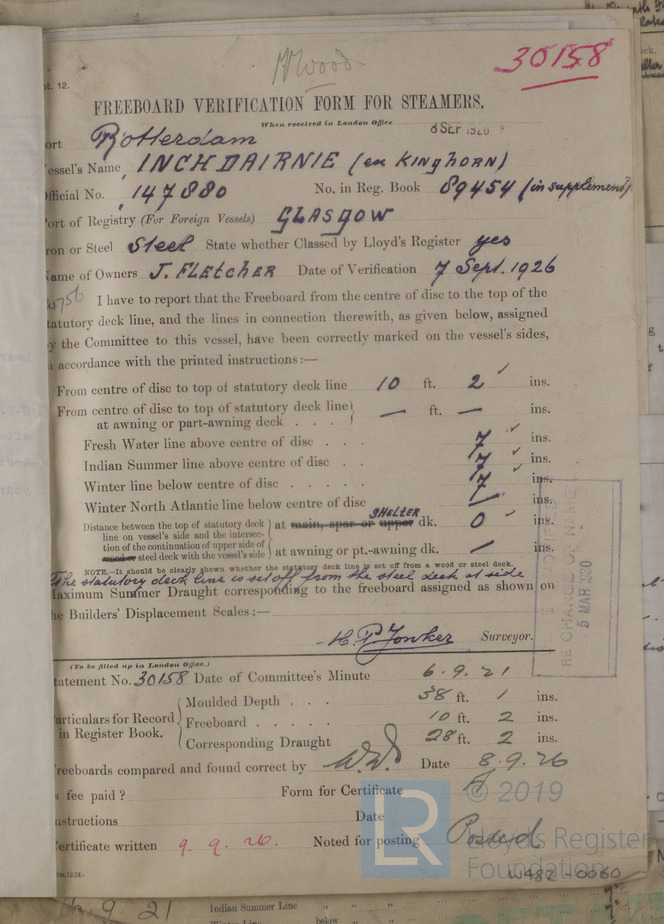 Wood
30158
pt. 12.
FREEBOARD VERIFICATION FORM FOR STEAMERS.
When received in London Office
8 SEP 1926
ort Rotterdam
essel's Name INCHDAIRNIE (ex KINGHORN)
fficial No. 147880 No. in Reg. Book 89454 (in supplement)
ort of Registry (For Foreign Vessels) GLASGOW
ron or Steel Steel State whether Classed by Lloyd's Register yes
ame of Owners J. FLETCHER Date of Verification 7 Sept. 1926
I have to report that the Freeboard from the centre of disc to the top of the
tatutory deck line, and the lines in connection therewith, as given below, assigned
y the Committee to this vessel, have been correctly marked on the vessel's sides,
accordance with the printed instructions:—
From centre of disc to top of statutory deck line 10 ft. 2 ins.
From centre of disc to top of statutory deck line
at awning or part-awning deck . . . — ft. — ins.
Fresh Water line above centre of disc . . . 7 ins.
Indian Summer line above centre of disc . . 7 ins.
Winter line below centre of disc . . . . . 7 ins.
Winter North Atlantic line below centre of disc / ins.
Distance between the top of statutory deck
line on vessel's side and the intersec-
tion of the continuation of upper side of
wood or steel deck with the vessel's side
at main, spar or upper SHELTER dk. 0 ins.
at awning or pt.-awning dk. / ins.
NOTE.—It should be clearly shewn whether the statutory deck line is set off from a wood or steel deck.
The statutory deck line is set off from the steel deck at side
Maximum Summer Draught corresponding to the freeboard assigned as shown on
he Builders' Displacement Scales:—
Surveyor.
RE CHANGE OF NAME
5 MAR 1930
(To be filled up in London Office.)
tatement No. 30158 Date of Committee's Minute 6.9.21
articulars for Record
in Register Book.
Moulded Depth . . . 38 ft. 1 ins.
Freeboard . . . . . 10 ft. 2 ins.
Corresponding Draught 28 ft. 2 ins.
reeboards compared and found correct by Date 8.9.26
s fee paid ? Form for Certificate
nstructions Date
ertificate written 9.9.26. Noted for posting Posted
LR
© 2019
Lloyd's Register
Foundation
W482-0060
6.9.21
Indian Summer Line
below